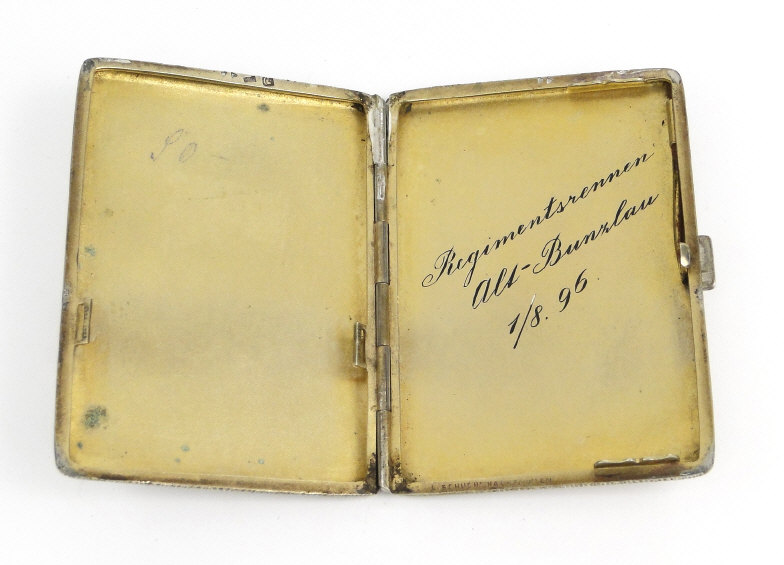 Regimentsrennen
Alt-Bunzlau
1/8. 96.